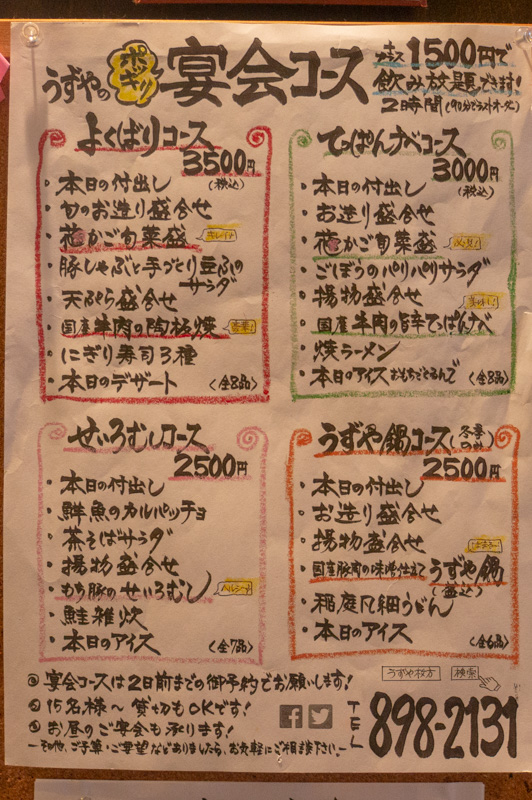 うずやの
ポッキリ
宴会コース
プラス1500円で
飲み放題できます!
2時間(90分でラストオーダー)
よくばりコース
3500円
(税込)
・本日の付出し
・旬のお造り盛合せ
・花かご旬菜盛
キレイ!
・豚しゃぶと手づくり豆ふの
サラダ
・天ぷら盛合せ
・国産牛肉の陶板焼
豪華!
・にぎり寿司3種
・本日のデザート
〈全8品〉
てっぱんナベコース
3000円
(税込)
・本日の付出し
・お造り盛合せ
・花かご旬菜盛
必見!
・ごぼうのパリパリサラダ
・揚物盛合せ
美味い!
・国産牛肉の旨辛てっぱんナベ
・焼ラーメン
・本日のアイスおもちでくるんで
〈全8品〉
せいろむしコース
2500円
・本日の付出し
・鮮魚のカルパッチョ
・茶そばサラダ
・揚物盛合せ
・もち豚のせいろむし
ヘルシー♪
・鮭雑炊
・本日のアイス
〈全7品〉
うずや鍋コース(冬季のみ)
2500円
・本日の付出し
・お造り盛合せ
・揚物盛合せ
・国産豚肉の味噌仕立うずや鍋
(釜込)
・稲庭風細うどん
・本日のアイス
〈全6品〉
◎宴会コースは2日前までの御予約でお願いします!
◎15名様〜貸切もOKです!
◎お昼のご宴会も承ります!
ーその他、ご予算・ご要望などありましたら、お気軽にご相談下さい。ー
うずや枚方
検索
TEL
898-2131